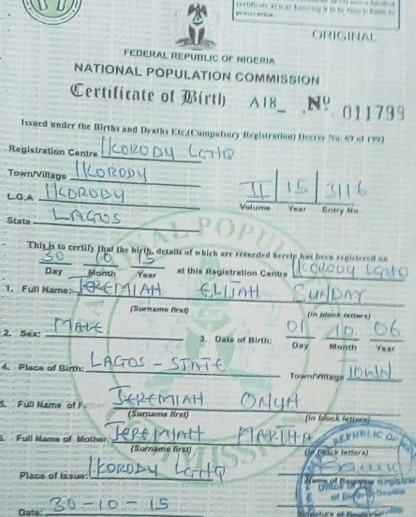 ORIGINAL
FEDERAL REPUBLIC OF NIGERIA
NATIONAL POPULATION COMMISSION
Certificate of Birth A18_ .Nº 011793
Issued under the Births and Deaths Etc.(Compulsory Registration) Decree No. 69 of 1992
Registration Centre IKORODU LGHQ
Town/Village IKORODU
L.G.A IKORODU II 15 3116
Volume Year Entry No
State LAGOS
This is to certify that the birth, details of which are recorded herein has been registered on
30 10 15 at this Registration Centre IKORODU LGHQ
Day Month Year
1. Full Name: JEREMIAH ELIJAH SUNDAY
(Surname first) (in block letters)
2. Sex: MALE 3. Date of Birth: 01 10 06
Day Month Year
4. Place of Birth: LAGOS - STATE Town/Village TOWN
5. Full Name of Father JEREMIAH
(Surname first) (in block letters)
6. Full Name of Mother: JEREMIAH MARTHA
(Surname first) (in block letters)
Place of Issue: IKORODU LGHQ
Date: 30-10-15